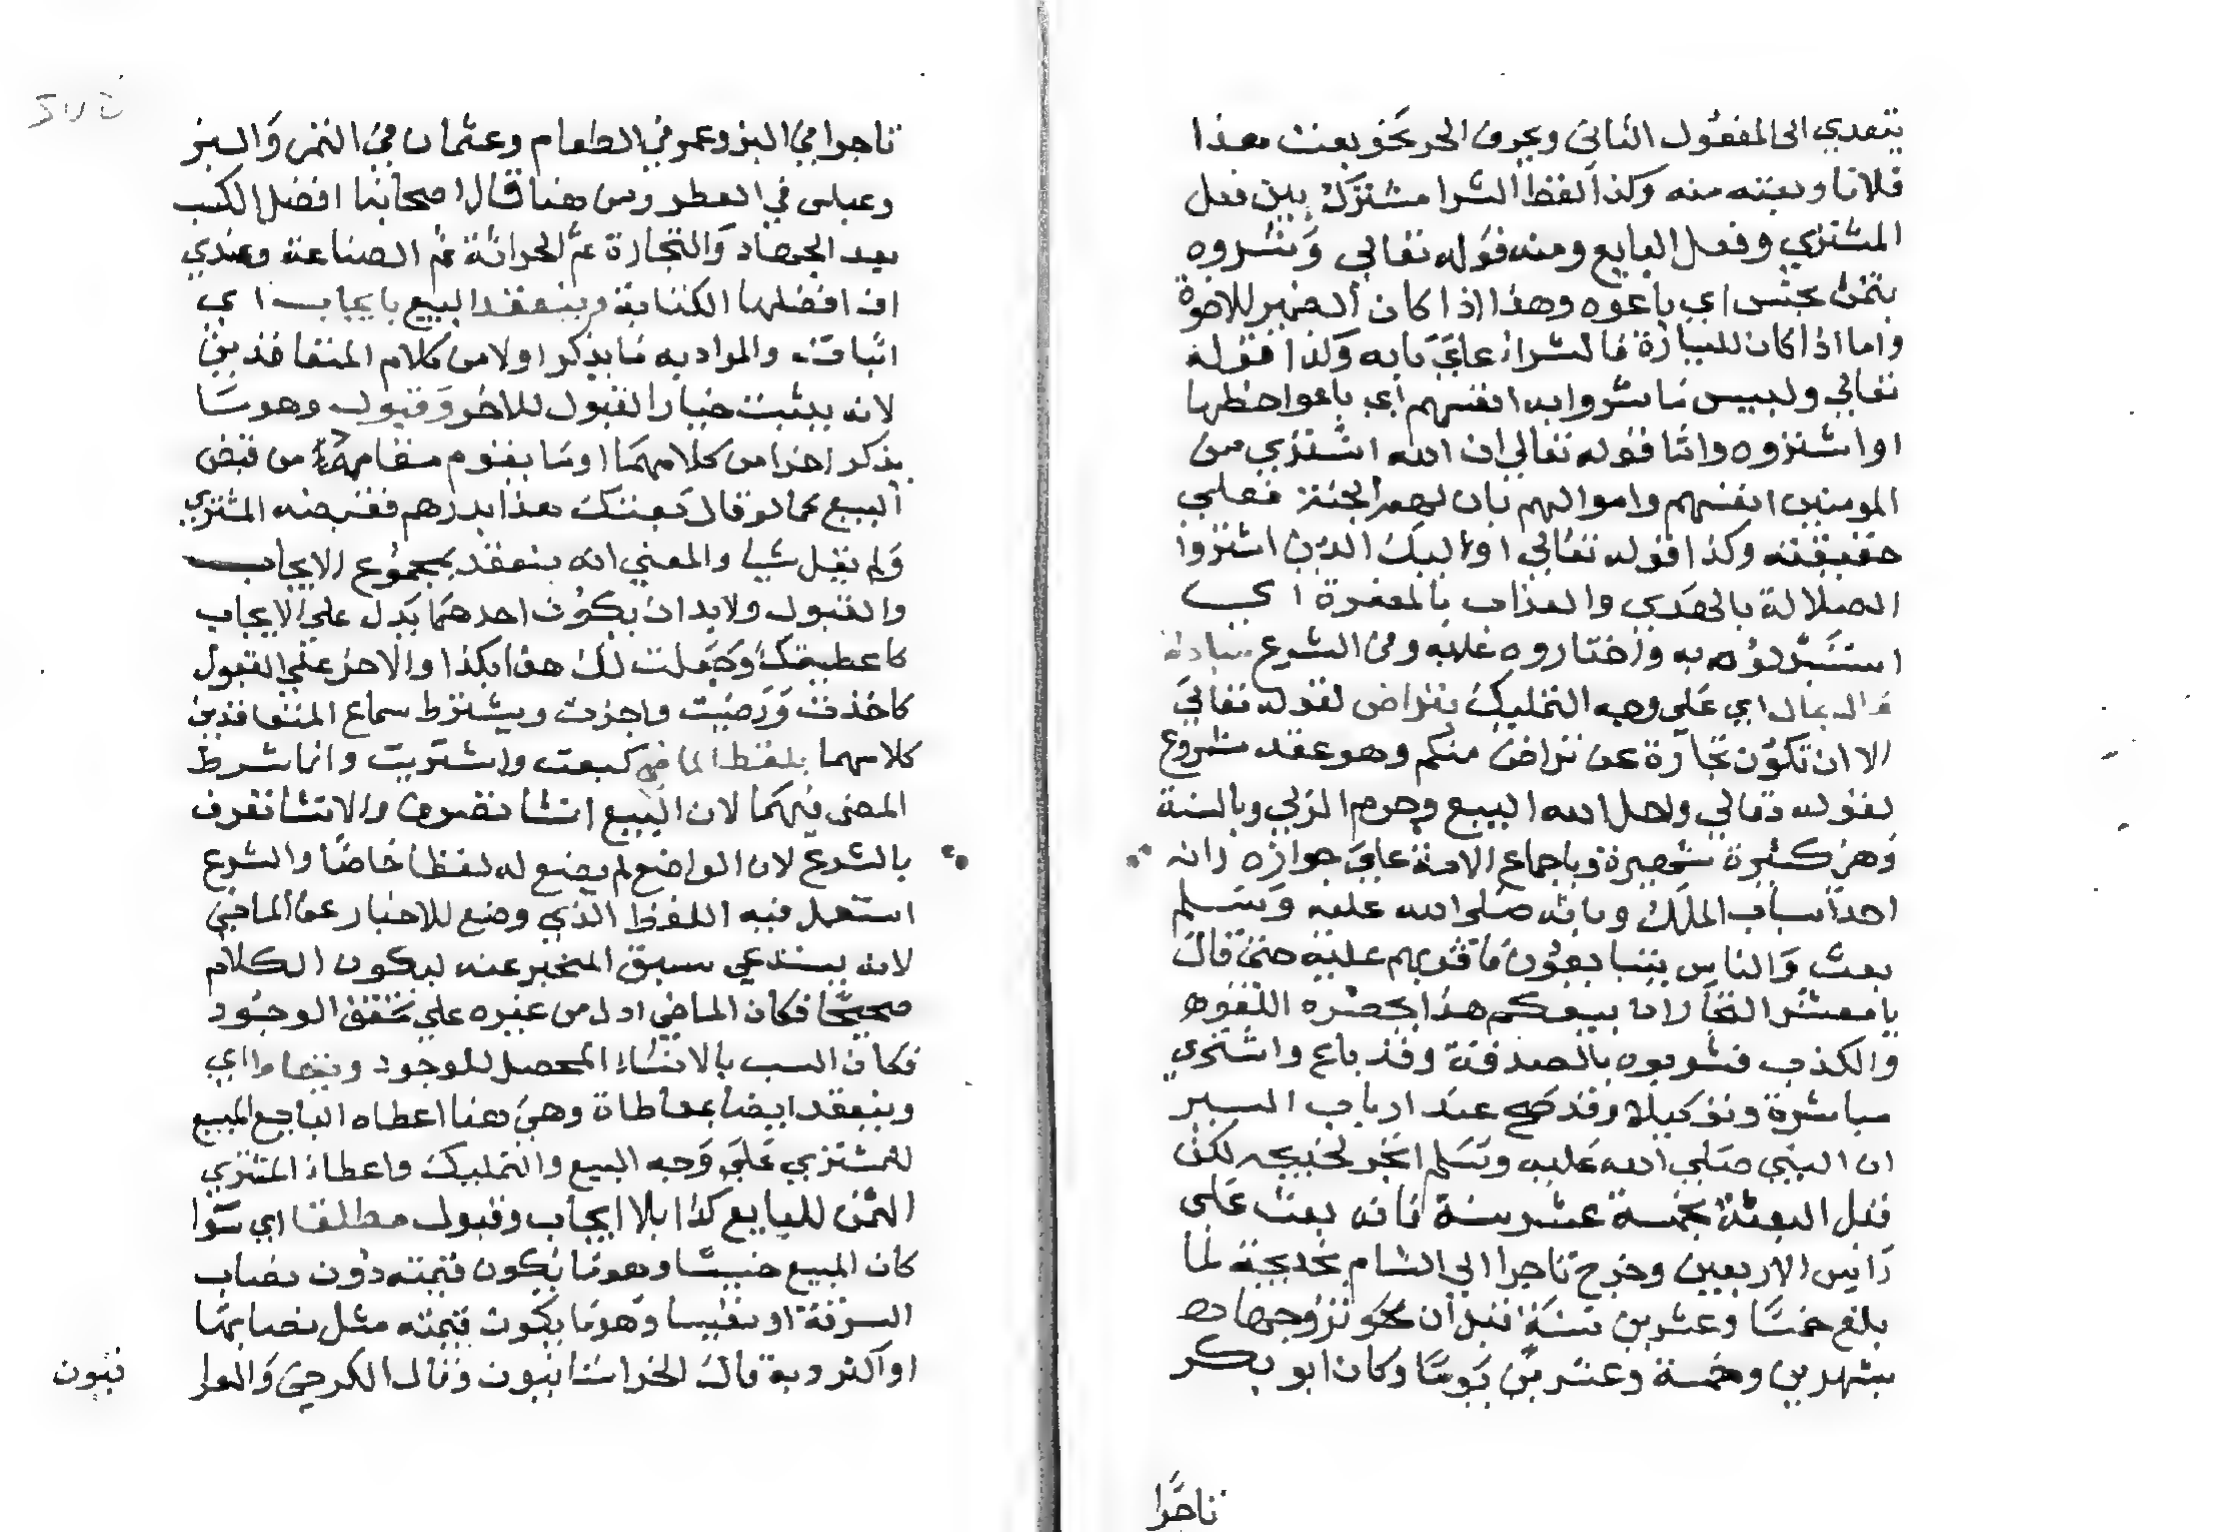 يتعدي الى المفعول الثاني وبحرف الجر نحو بعث هذا
فلانا وبعته منه وكذا لفظ الشرا مشترك بين فعل
المشتري وفعل البايع ومنه قوله تعالي وشروه
بثمن بخس اي باعوه وهذا اذا كان الضمير للاخوة
واما اذا كان للسيارة فالشراء علي بابه وكذا قوله
تعالي ولبيس ما شروا به انفسهم اي باعوا حظها
او اشتروه واما قوله تعالي ان الله اشتري من
المومنين انفسهم واموالهم بان لهم الجنة فعلي
حقيقته وكذا قوله تعالي اوليك الذين اشتروا
الضلالة بالهدي والعذاب بالمغفرة اي
استبدلوه به واختاروه عليه وفي الشرع مبادلة
مال بمال اي على وجه التمليك بتراض لقوله تعالي
الا ان تكون تجارة عن تراض منكم وهو عقد مشروع
لقوله تعالي واحل الله البيع وحرم الربي وبالسنة
وهي كثيرة شهيرة وباجماع الامة علي جوازه وانه
احد اسباب الملك وبانه صلى الله عليه وسلم
بعث والناس يتبايعون فاقرهم عليه حتى قال
يا معشر التجار ان بيعكم هذا يحضره اللغو
والكذب فشوبوه بالصدقة وقد باع واشتري
مباشرة وتوكيلا وقد صح عند ارباب السير
ان النبي صلي الله عليه وسلم اتجر لخديجه لكن
قبل البعثة بخمسة عشر سنة فانه بعث على
راس الاربعين وخرج تاجرا الي الشام بخديجة لما
بلغ خمسا وعشرين سنة قبل ان تزوجها
بشهرين وخمسة وعشرين يوما وكان ابو بكر
تاجرا
تاجرا في البز وعمر في الطعام وعثمان في التمر والبز
وعباس في العطر ومن هنا قال اصحابنا افضل الكسب
بعد الجهاد والتجارة ثم الحراثة ثم الصناعة وعندي
ان افضلها الكتابة وينعقد البيع بايجاب اي
اثبات والمراد به ما يذكر اولا من كلام المتعاقدين
لانه يثبت خيار القبول للاخر وقبول وهو ما
يذكر اخرا من كلامهما او ما يقوم مقامهما من قبض
البيع كما لو قال بعتك هذا بدرهم فقبضه المشتري
ولم يقل شيا والمعني انه ينعقد بمجموع الايجاب
والقبول ولا بد ان يكون احدهما يدل علي الايجاب
كاعطيتك وجعلت لك هذا بكذا والاخر علي القبول
كاخذت ورضيت واجزت ويشترط سماع المتعاقدين
كلامهما بلفظ الماضي كبعت واشتريت وانما شرط
المضي فيهما لان البيع انشا تصرف والانشا تعرف
بالشرع لان الواضع لم يضع له لفظا خاصا والشرع
استعمل فيه اللفظ الذي وضع للاخبار عن الماضي
لانه يستدعي سبق المخبر عنه ليكون الكلام
صحيحا فكان الماضي ادل من غيره علي تحقق الوجود
فكان انسب بالانشاء المحصل للوجود وبتعاط اي
وينعقد ايضا بمعاطاة وهي هنا اعطاه البايع المبيع
للمشتري علي وجه البيع والتمليك واعطاء المشتري
الثمن للبايع كذا بلا ايجاب وقبول مطلقا اي سوا
كان المبيع خسيسا وهو ما يكون قيمته دون نصاب
السرقة او نفيسا وهو ما يكون قيمته مثل نصابها
او اكثر وبه قال الخراسانيون وقال الكرخي والعرا
قيون